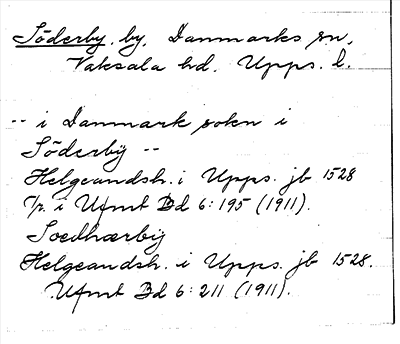 Söderby. by, Danmarks sn,
Vaksala hd. Upps. l.
-- i Danmark sokn i
Söderbÿ --
Helgeandsh. i Upps. jb 1528
Tr. i Ufmt Bd 6:195 (1911).
Soedhærbÿ
Helgeandsh. i Upps. jb 1528.
Ufmt Bd 6:211 (1911).